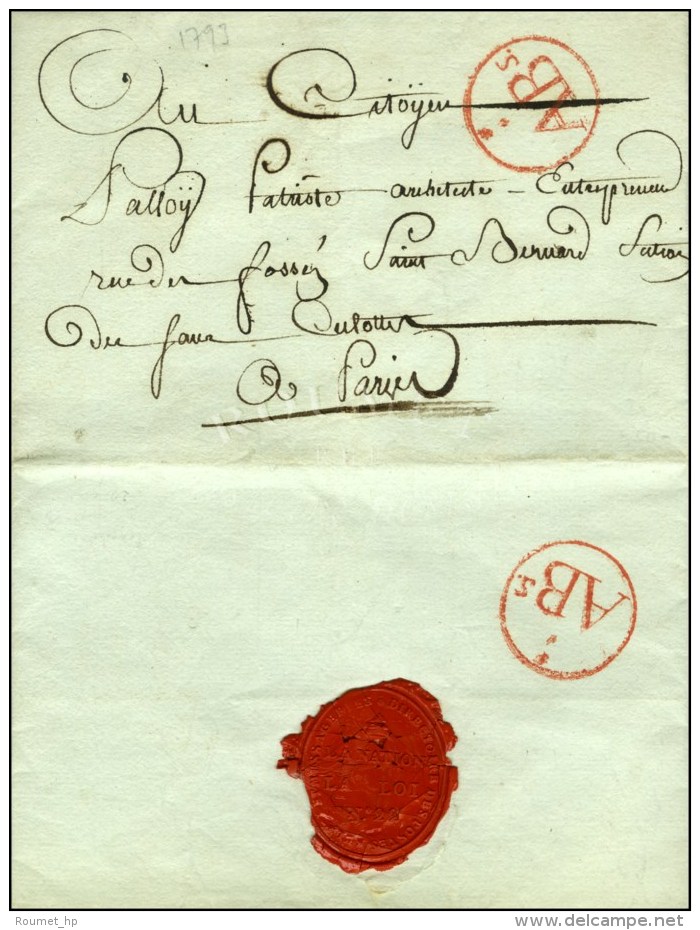 1793
Au Citoÿen
Palloÿ Patriote architecte - Entrepreneur
rue des fossés Saint Bernard Section
des sans Culottes
A Paris
ABs
ABs
LA NATION
LA LOI
N° 22
Roumet_hp
© www.delcampe.net